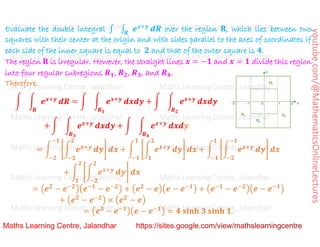 Evaluate the double integral ∫ ∫_R e^{x+y} dR over the region R, which lies between two
squares with their center at the origin and with sides parallel to the axes of coordinates if
each side of the inner square is equal to 2 and that of the outer square is 4.
The region R is irregular. However, the straight lines x = −1 and x = 1 divide this region
into four regular subregions R₁, R₂, R₃, and R₄.
Therefore,
∫ ∫_R e^{x+y} dR = ∫ ∫_{R₁} e^{x+y} dxdy + ∫ ∫_{R₂} e^{x+y} dxdy
+ ∫ ∫_{R₃} e^{x+y} dxdy + ∫ ∫_{R₄} e^{x+y} dxdy
= ∫_{−2}^{−1} ∫_{−2}^{2} e^{x+y} dy dx + ∫_{−1}^{1} ∫_{1}^{2} e^{x+y} dy dx + ∫_{−1}^{1} ∫_{−2}^{−1} e^{x+y} dy dx
+ ∫_{1}^{2} ∫_{−2}^{2} e^{x+y} dy dx
= (e² − e^{−2})(e^{−1} − e^{−2}) + (e² − e)(e − e^{−1}) + (e^{−1} − e^{−2})(e − e^{−1})
+ (e² − e^{−2}) × (e² − e)
= (e³ − e^{−3})(e − e^{−1}) = 4 sinh 3 sinh 1.
youtube.com/@MathematicsOnlineLectures
Maths Learning Centre, Jalandhar https://sites.google.com/view/mathslearningcentre